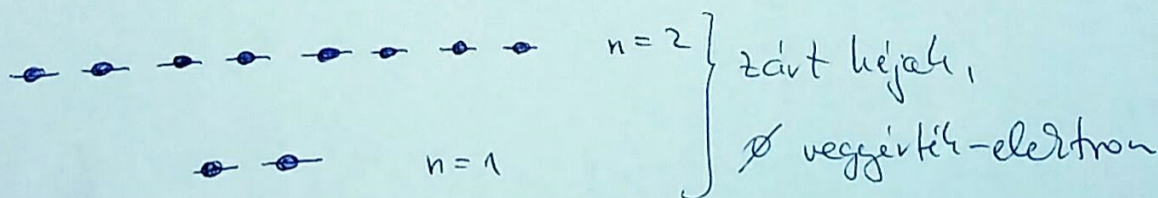 n = 2 } zárt héjak,
∅ vegyérték-elektron
n = 1